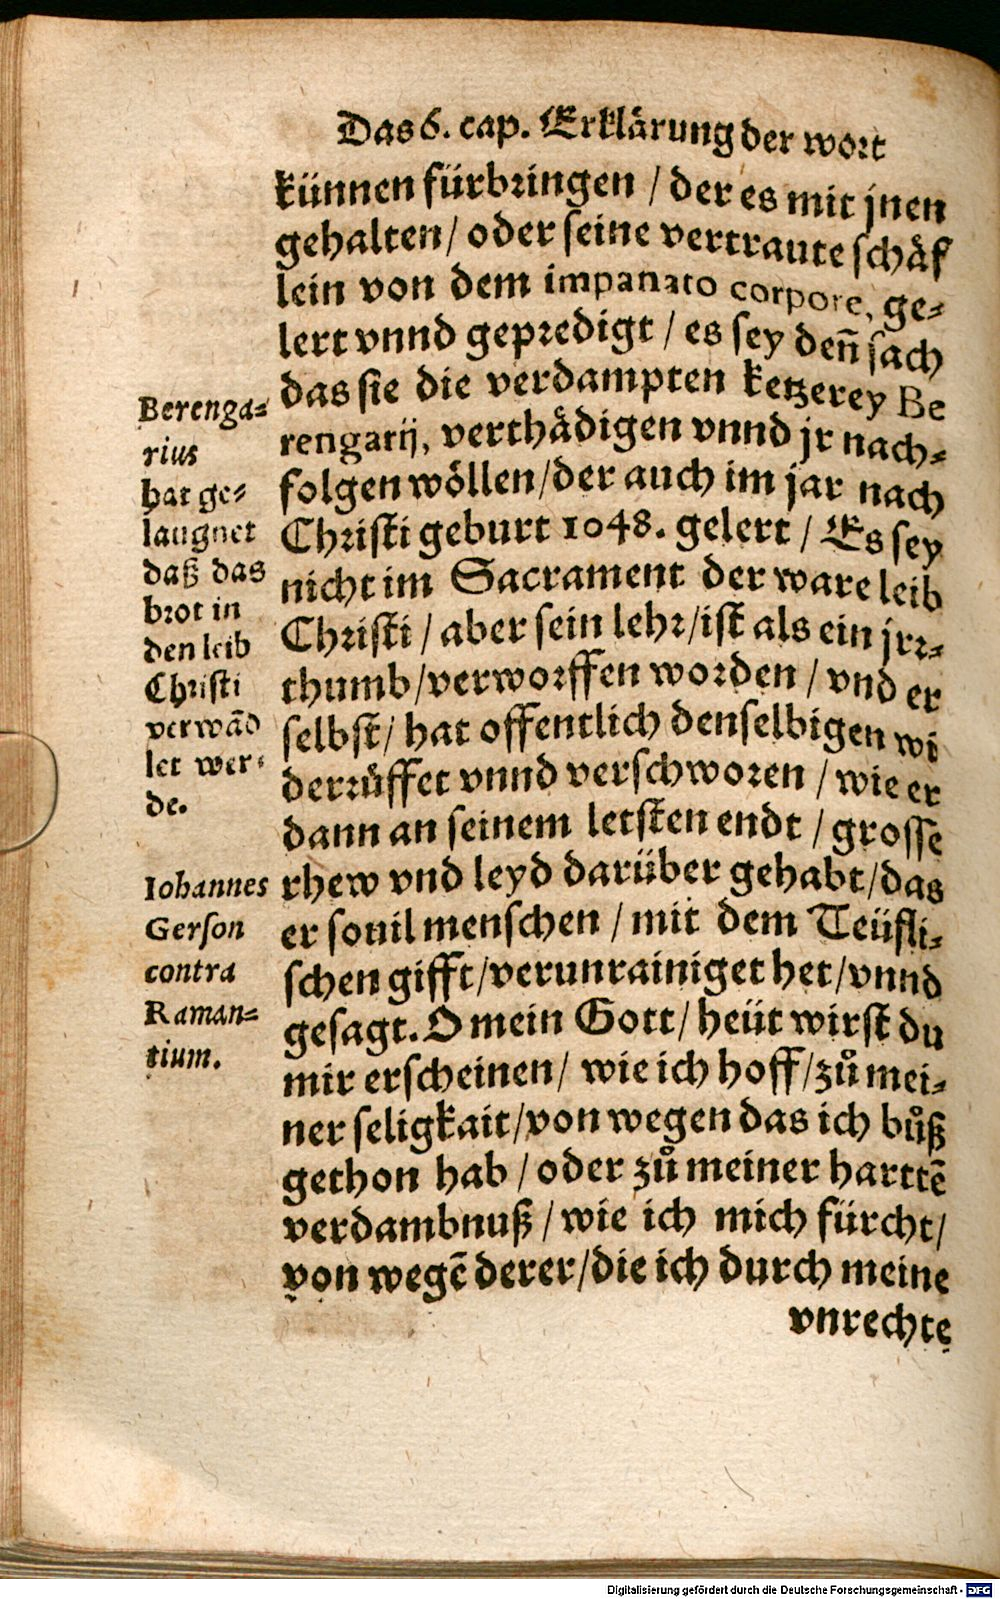 Das 6. cap. Erklärung der wort
künnen fürbringen / der es mit jnen
gehalten / oder seine vertraute schäf
lein von dem impanato corpore, ge⸗
lert vnnd gepredigt / es sey den̄ sach
das sie die verdampten ketzerey Be
rengarij, verthädigen vnnd jr nach⸗
folgen wöllen / der auch im jar nach
Christi geburt 1048. gelert / Es sey
nicht im Sacrament der ware leib
Christi / aber sein lehr / ist als ein jrr⸗
thumb / verworffen worden / vnd er
selbst / hat offentlich denselbigen wi
derrůffet vnnd verschworen / wie er
dann an seinem letsten endt / grosse
rhew vnd leyd darüber gehabt / das
er souil menschen / mit dem Teüfli⸗
schen gifft / verunrainiget het / vnnd
gesagt. O mein Gott / heüt wirst du
mir erscheinen / wie ich hoff / zů mei⸗
ner seligkait / von wegen das ich bůß
gethon hab / oder zů meiner harttē
verdambnuß / wie ich mich fürcht /
von wegē derer / die ich durch meine
vnrechte
Berenga⸗
rius
hat ge⸗
laugnet
daß das
brot in
den leib
Christi
verwād
let wer⸗
de.
Iohannes
Gerson
contra
Raman⸗
tium.
Digitalisierung gefördert durch die Deutsche Forschungsgemeinschaft - DFG